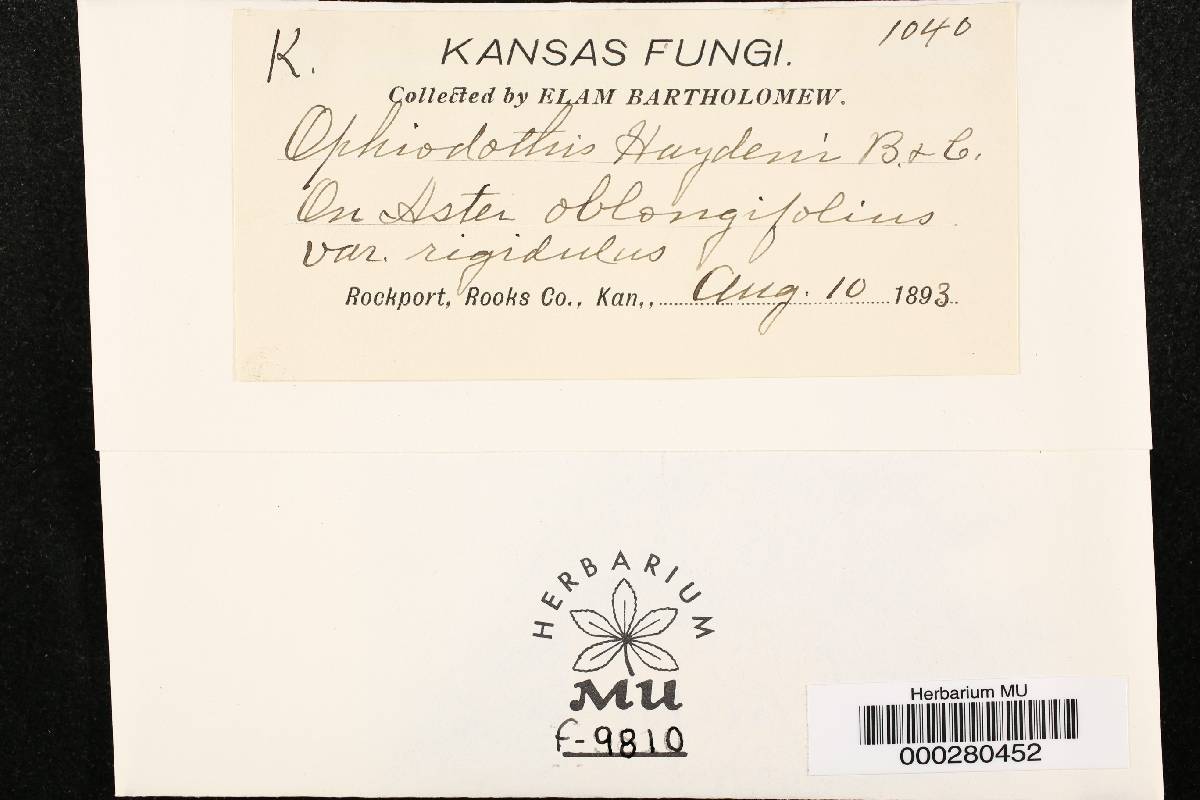 K.
1040
KANSAS FUNGI.
Collected by ELAM BARTHOLOMEW.
Ophiodothis Haydeni B. & C.
On Aster oblongifolius
var. rigidulus
Rockport, Rooks Co., Kan., Aug. 10 1893
HERBARIUM
MU
F-9810
Herbarium MU
000280452